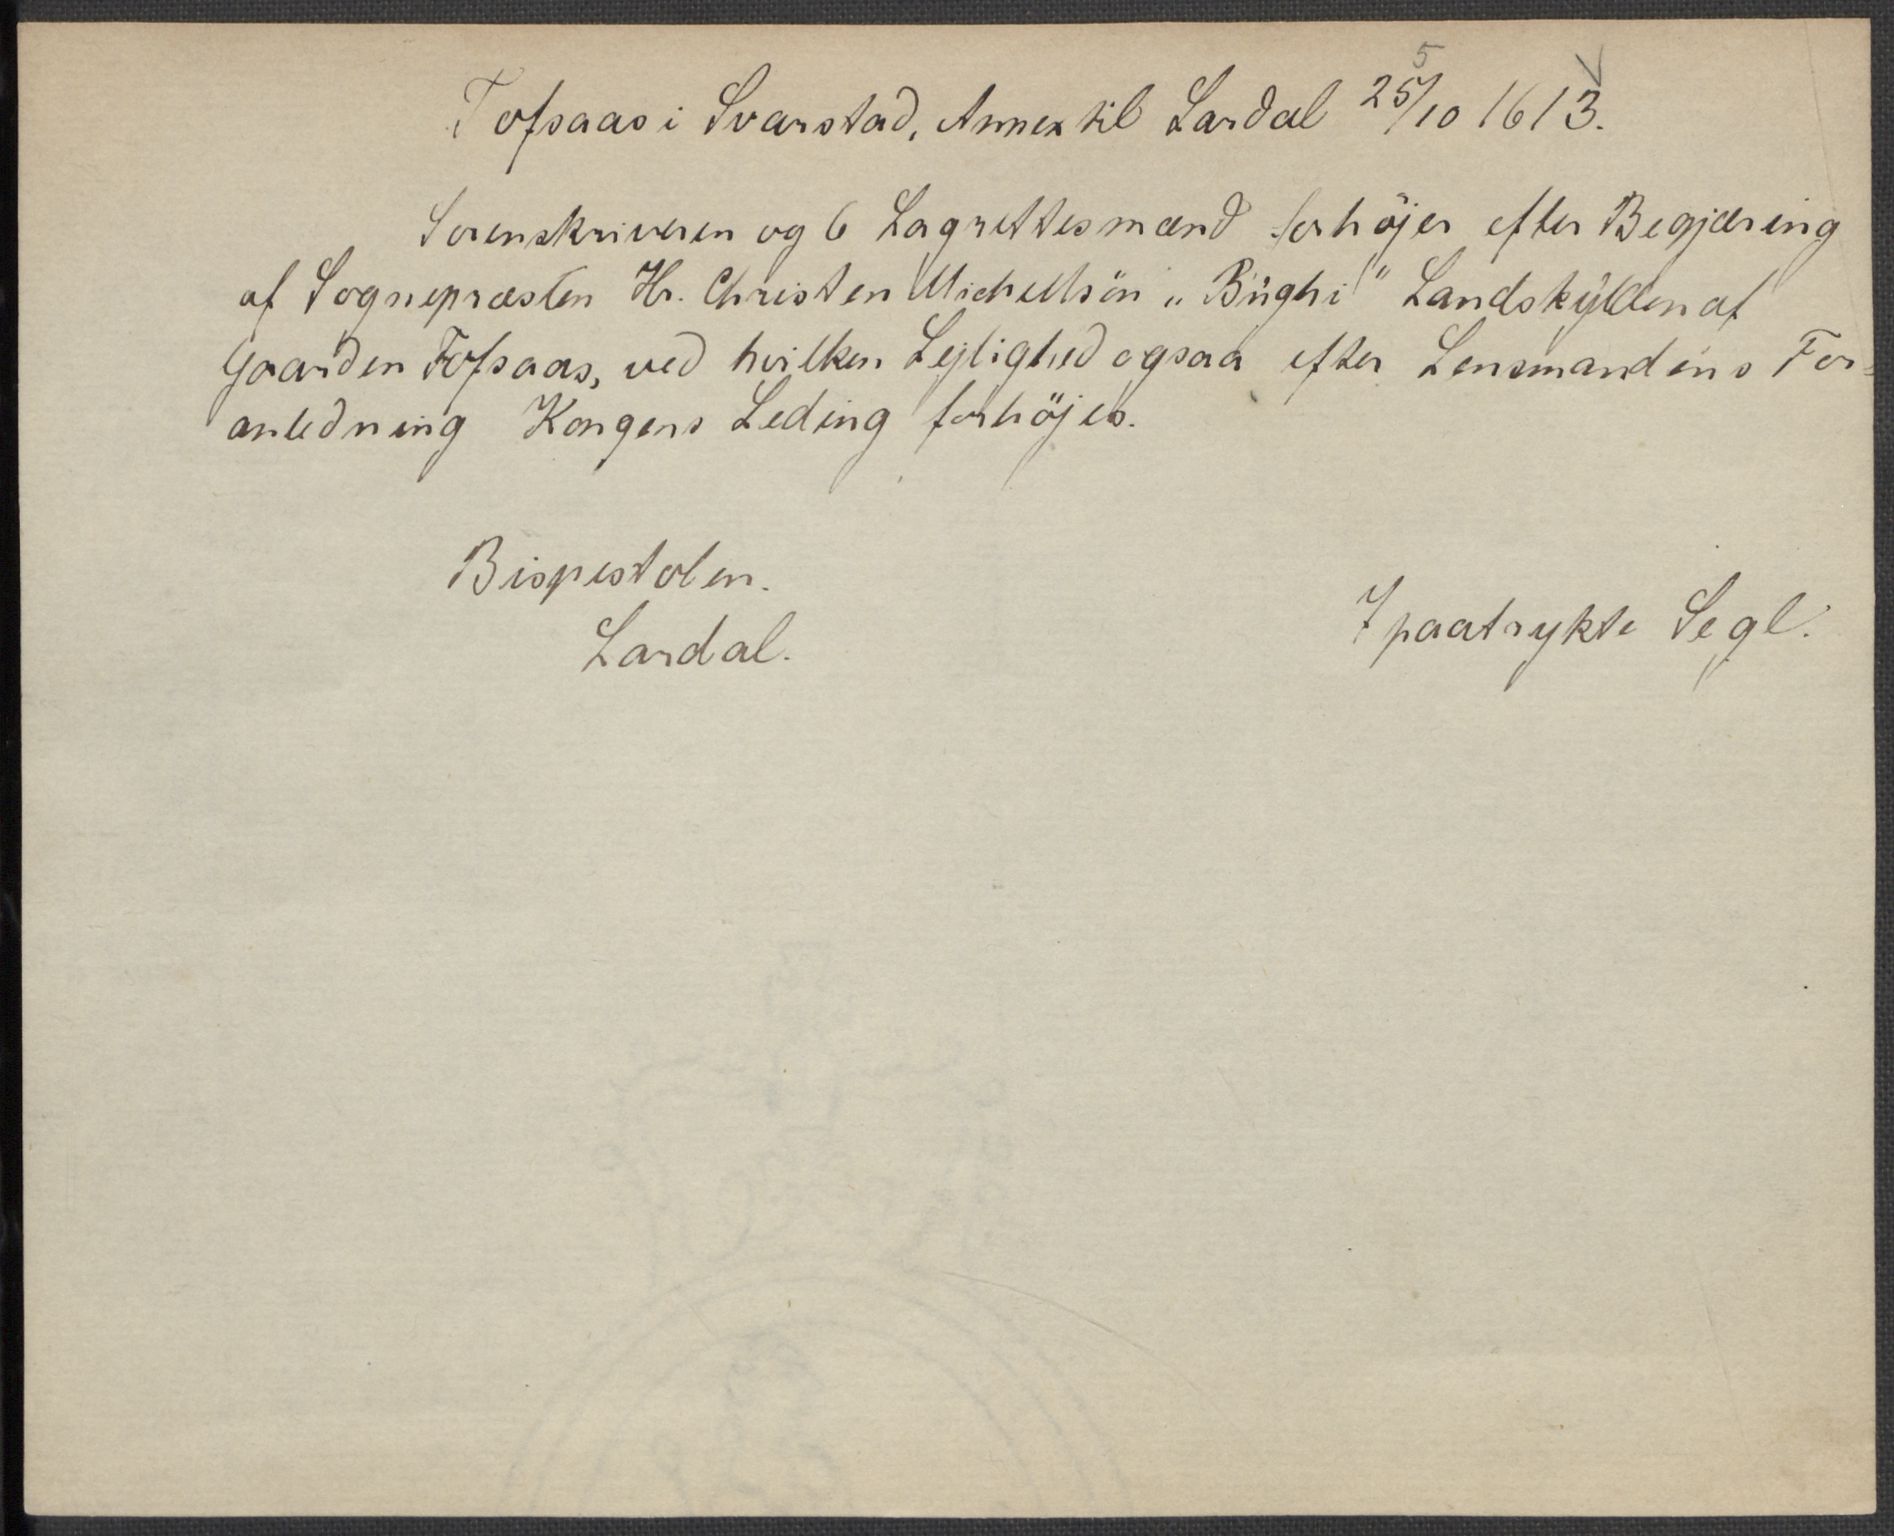 Tofsaas i Svarstad, Annex til Lardal 25/10 1613.
Sorenskriveren og 6 Lagrettesmænd forhöjer efter Begjæring
af Sognepræsten Hr. Christen Michellsön „Büghi" Landskÿlden af
Gaarden Tofsaas, ved hvilken Lejlighed ogsaa efter Lensmandens For-
anledning Kongens Leding forhöjes.
Bispestolen.
Lardal.
7 paatrykte Segl.